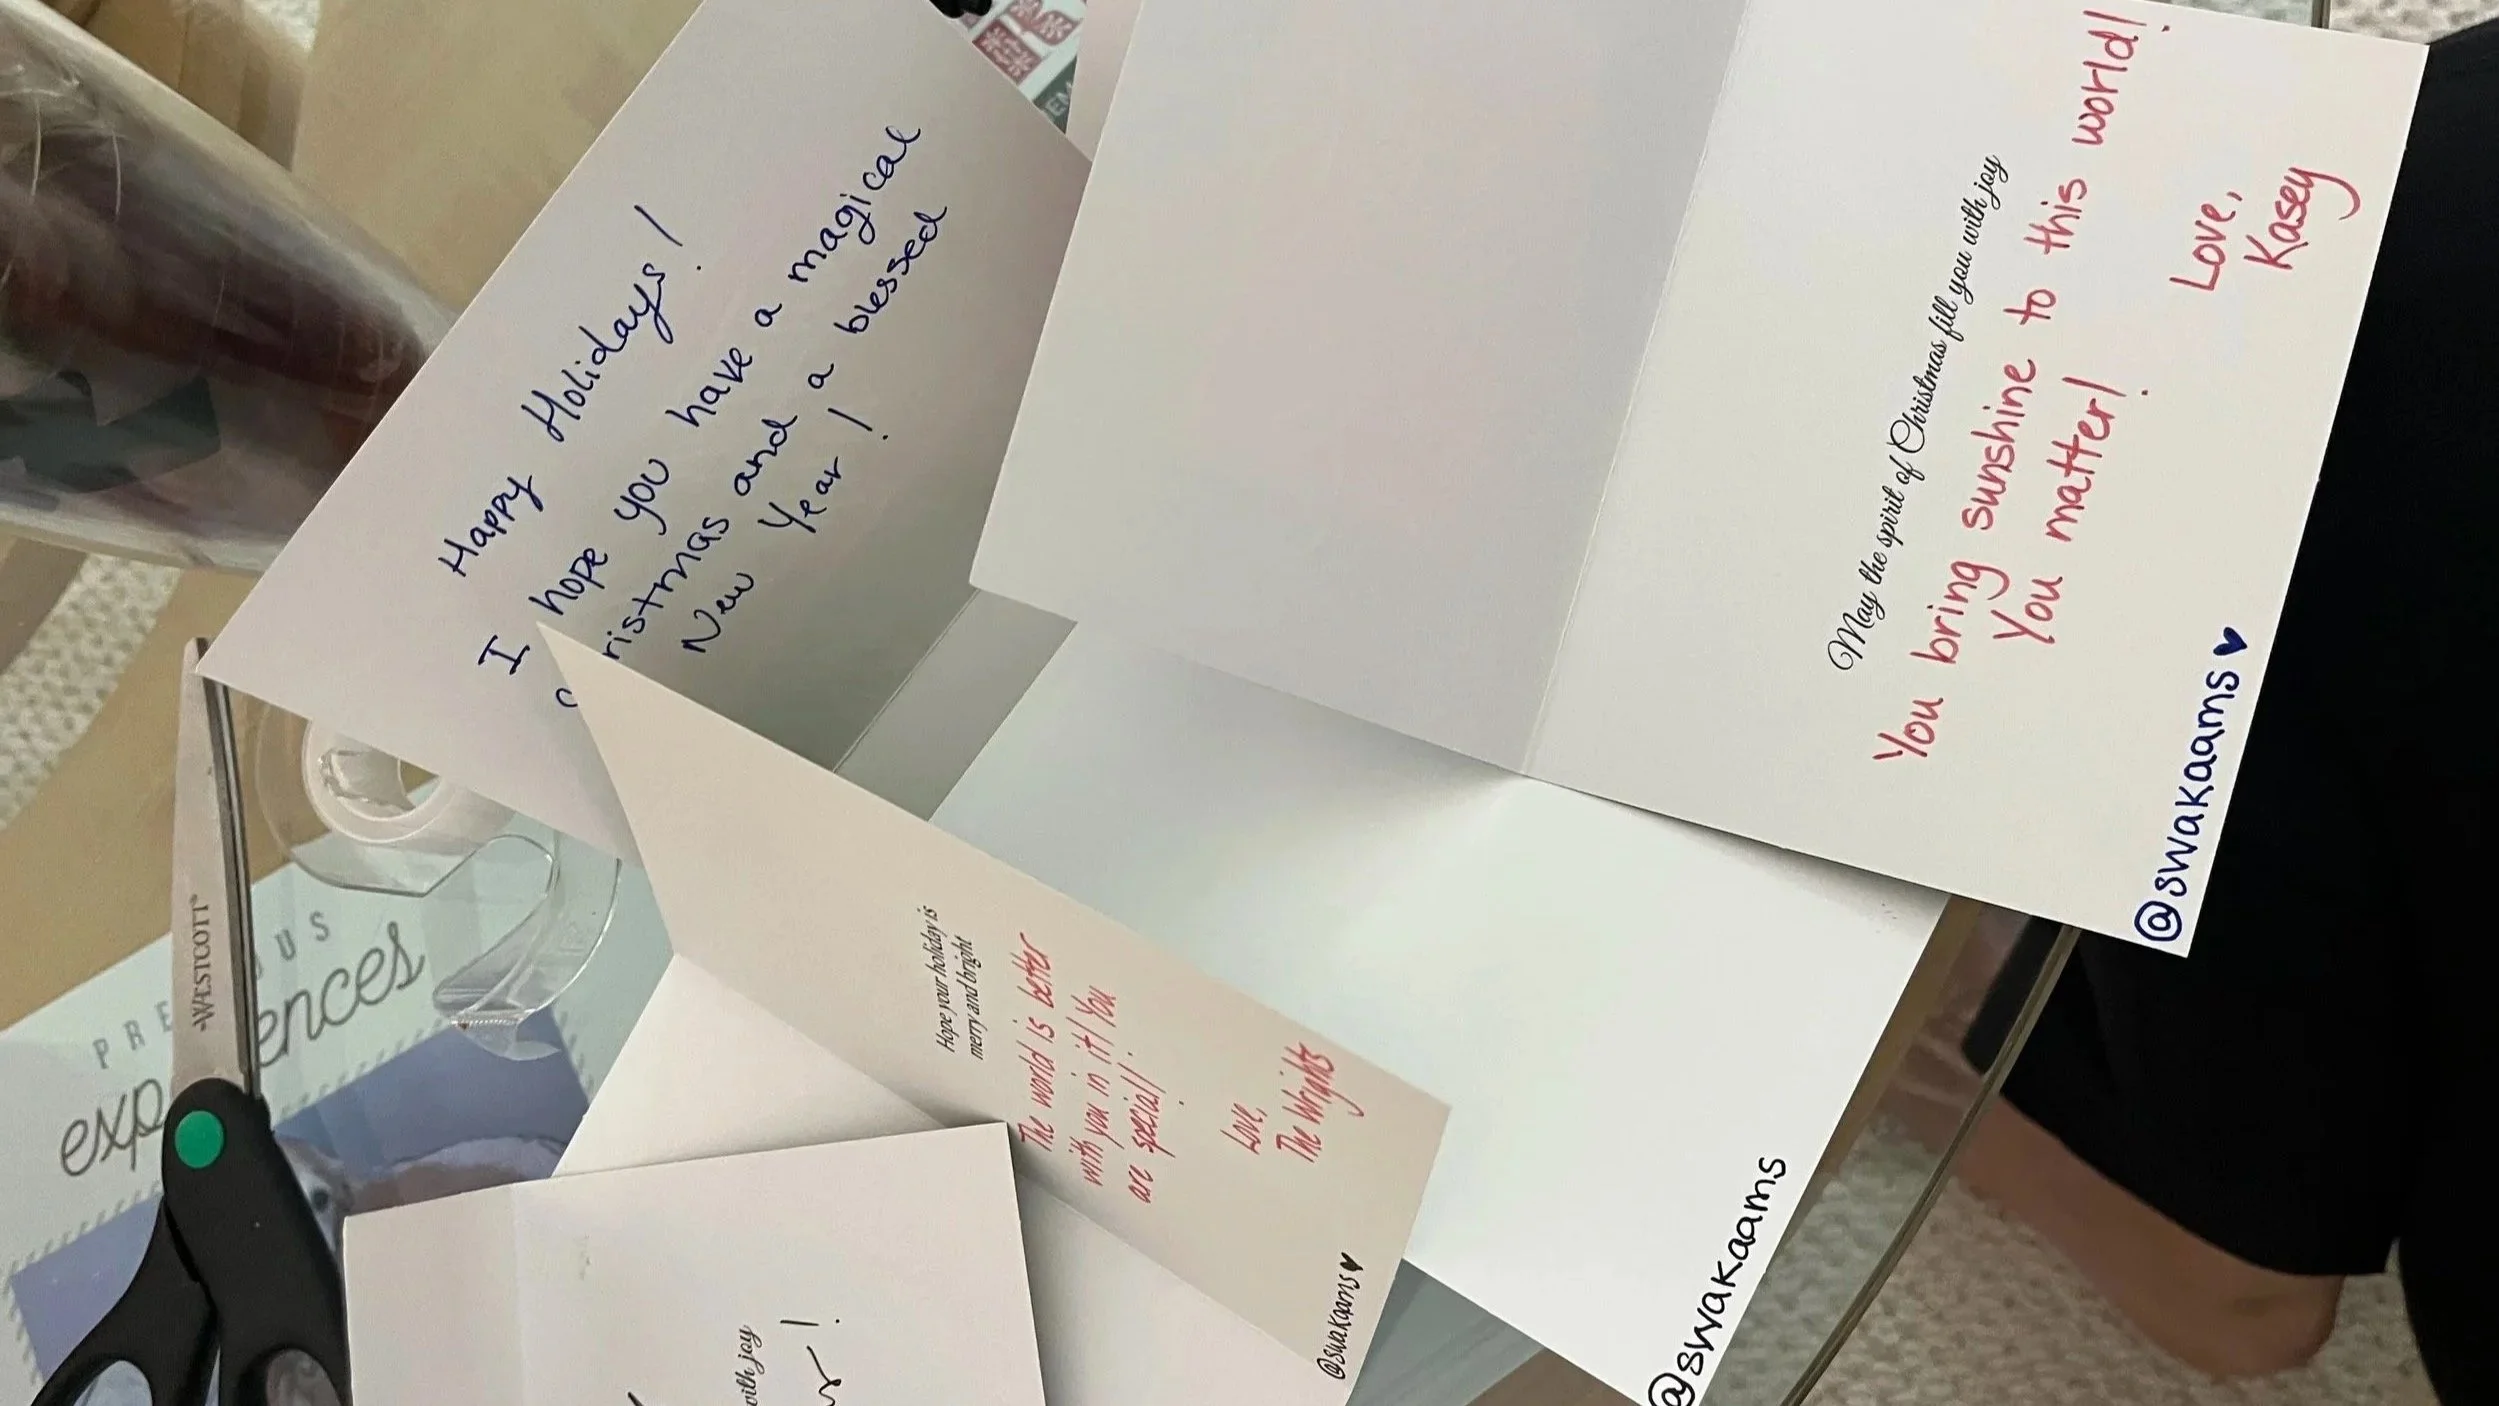 Happy Holidays!
I hope you have a magical
ristmas and a blessed
New Year!
May the spirit of Christmas fill you with joy
You bring sunshine to this world!
You matter!
Love,
Kasey
@swakaams
Hope your holiday is
merry and bright
The world is better
with you in it! You
are special!
Love,
The Wrights
@swakaams
@swakaams
with joy
WESTCOTT
PRE US
exp ences
EM